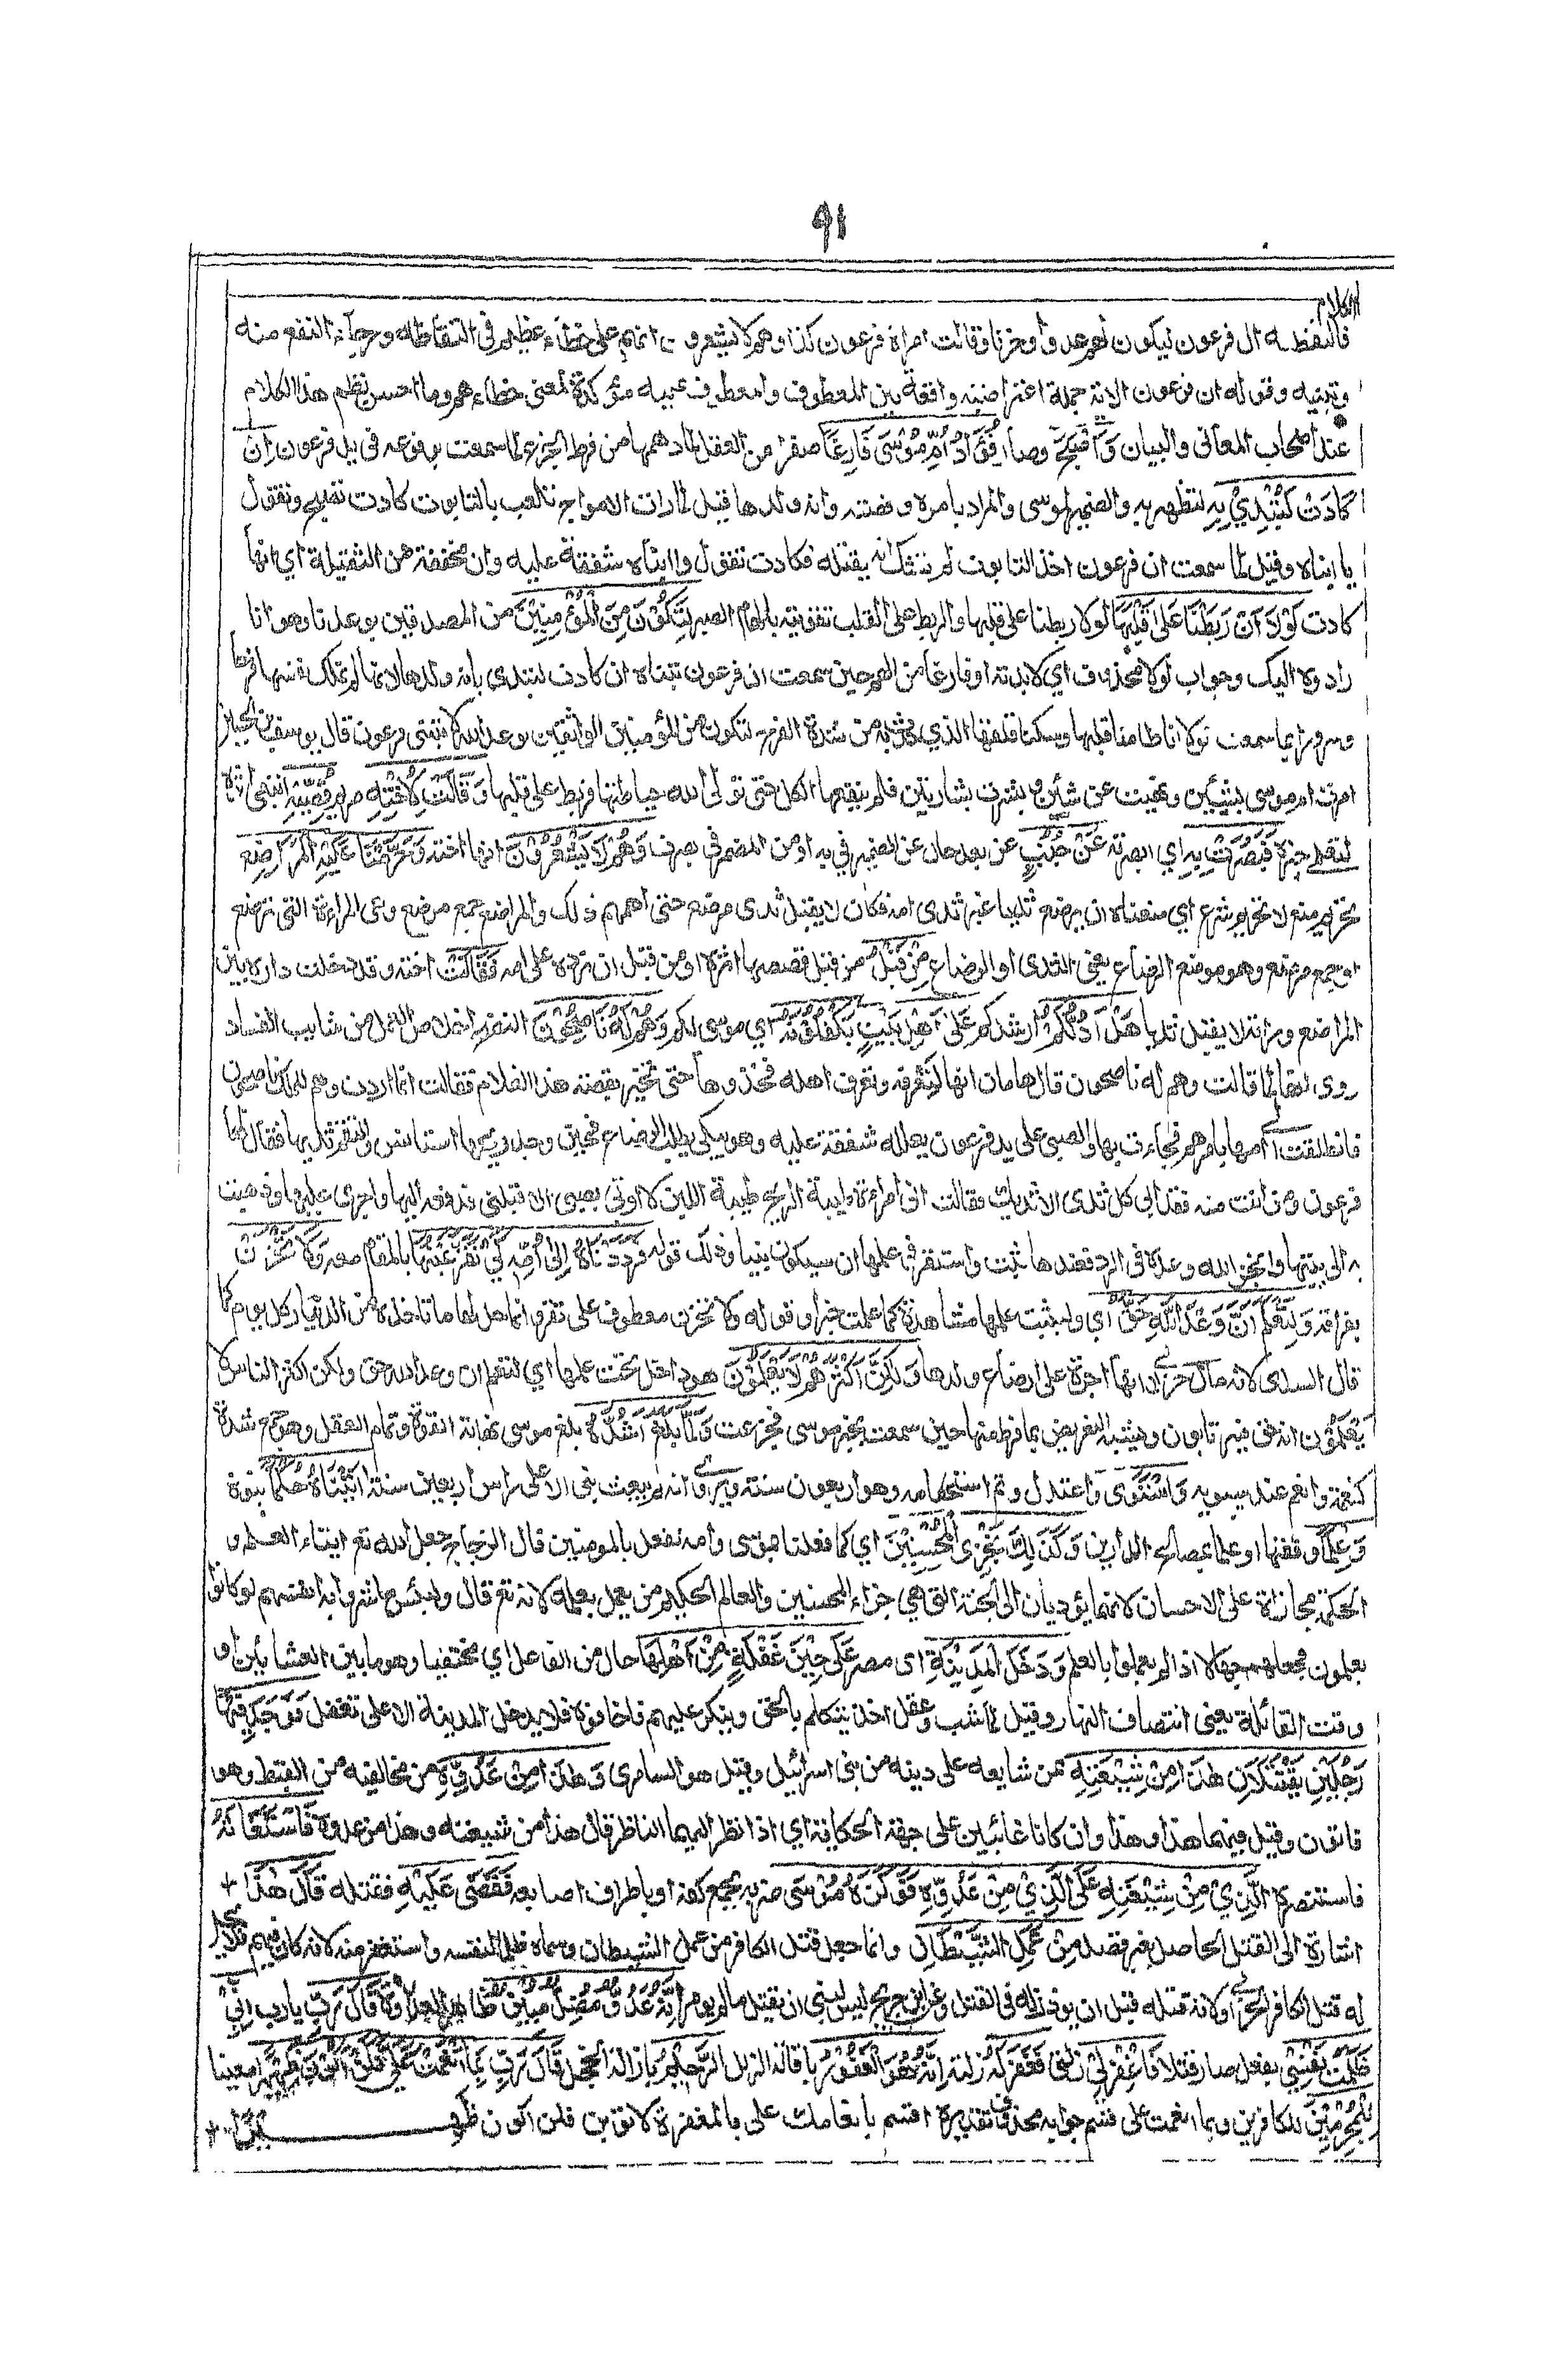 ٩١
الكلام
فالتقطه ال فرعون ليكون لهم عدوا وحزنا وقالت امراة فرعون كذا وهم لا يشعرون انهم على خطاء عظيم في التقاطه ورجاء النفع منه
وتبنيه وقوله ان فرعون الاية جملة اعتراضية واقعة بين المعطوف والمعطوف عليه مؤكدة لمعنى خطاءهم وما احسن نظم هذا الكلام
عند اصحاب المعاني والبيان وَاَصْبَحَ وصار فُؤَادُ اُمِّ مُوْسٰى فَارِغًا صفرا من العقل لما دهمها من فرط الجزع لما سمعت بوقوعه في يد فرعون اِنْ
كَادَتْ لَتُبْدِيْ بِهٖ لتظهر به والضمير لموسى والمراد بامره وقصته وانه ولدها قيل لما رات الامواج تلعب بالتابوت كادت تصيح وتقول
يا ابناه وقيل لما سمعت ان فرعون اخذ التابوت لم تشك انه يقتله فكادت تقول وا ابناه شفقة عليه وان مخففة من الثقيلة اي انها
كادت لَوْلَا اَنْ رَبَطْنَا عَلٰى قَلْبِهَا لولا ربطنا على قلبها والربط على القلب تقويته بالهام الصبر لِتَكُوْنَ مِنَ الْمُؤْمِنِيْنَ من المصدقين بوعدنا وهو انا
رادوه اليك وجواب لولا محذوف اي لابدته او فارغا من الهم حين سمعت ان فرعون تبناه ان كادت لتبدي بانه ولدها لانها لم تملك نفسها فرحا
وسرورا بما سمعت لولا انا طامنا قلبها وسكنا قلقها الذي حدث به من شدة الفرح لتكون من المؤمنين الواثقين بوعد الله لا بتبني فرعون قال يوسف بن الحسين
امرت ام موسى بشيئين ونهيت عن شيئين وبشرت بشارتين فلم ينفعها الكل حتى تولى الله حياطتها فربط على قلبها وَقَالَتْ لِاُخْتِهٖ مريم قُصِّيْهِ اتبعي اثره
لتعلمي خبره فَبَصُرَتْ بِهٖ اي ابصرته عَنْ جُنُبٍ عن بعد حال عن الضمير في به او من المضمر في بصرت وَهُمْ لَا يَشْعُرُوْنَ انها اخته وَحَرَّمْنَا عَلَيْهِ الْمَرَاضِعَ
تحريم منع لا تحريم شرع اي منعناه ان يرضع ثديا غير ثدي امه فكان لا يقبل ثدي مرضع حتى اهمهم ذلك والمراضع جمع مرضع وهي المراءة التي ترضع
او جمع مرضع وهو موضع الرضاع يعني الثدي او الرضاع مِنْ قَبْلُ من قبل قصصها اثره او من قبل ان نرده على امه فَقَالَتْ اخته وقد دخلت داره بين
المراضع وراته لا يقبل ثديا هَلْ اَدُلُّكُمْ ارشدكم عَلٰى اَهْلِ بَيْتٍ يَكْفُلُوْنَهٗ اي موسى لكم وَهُمْ لَهٗ نَاصِحُوْنَ النصح اخلاص العمل من شايب الفساد
روى انها لما قالت وهم له ناصحون قال هامان انها لتعرفه وتعرف اهله فخذوها حتى تخبر بقصة هذا الغلام فقالت انما اردت وهم للملك ناصحون
فانطلقت الى امها بامرهم فجاءت بها والصبي على يد فرعون يعلله شفقة عليه وهو يبكي يطلب الرضاع فحين وجد ريحها استانس والتقم ثديها فقال لها
فرعون ومن انت منه فقد ابى كل ثدي الا ثديك فقالت اني امراءة طيبة الريح طيبة اللبن لا اوتى بصبي الا قبلني فدفعه اليها واجرى عليها وذهبت
به الى بيتها وانجز الله وعده في الرد فعندها ثبت واستقر في علمها ان سيكون نبيا وذلك قوله فَرَدَدْنَاهُ اِلٰى اُمِّهٖ كَيْ تَقَرَّ عَيْنُهَا بالمقام معه وَلَا تَحْزَنَ
بفراقه وَلِتَعْلَمَ اَنَّ وَعْدَ اللّٰهِ حَقٌّ اي وليثبت علمها مشاهدة كما علمت خبرا وقوله ولا تحزن معطوف على تقر وانما حل لها ما تاخذه من الدينار كل يوم كما
قال السدي لانه مال حربي لا انها اجرة على ارضاع ولدها وَلٰكِنَّ اَكْثَرَهُمْ لَا يَعْلَمُوْنَ هو داخل تحت علمها اي لتعلم ان وعد الله حق ولكن اكثر الناس لا
يعلمون انه حق فيرتابون ويشبه التعريض بما فرط منها حين سمعت بخبر موسى فجزعت وَلَمَّا بَلَغَ اَشُدَّهٗ بلغ موسى نهاية القوة وتمام العقل وهو جمع شدة
كنعمة وانعم عند سيبويه وَاسْتَوٰى واعتدل وتم استحكامه وهو اربعون سنة ويروى انه لم يبعث نبي الا على راس اربعين سنة اٰتَيْنَاهُ حُكْمًا نبوة
وَعِلْمًا وفقها او علما بمصالح الدارين وَكَذٰلِكَ نَجْزِى الْمُحْسِنِيْنَ اي كما فعلنا بموسى وامه نفعل بالمومنين قال الزجاج جعل الله تع ايتاء العلم و
الحكمة مجازاة على الاحسان لانهما يؤديان الى الجنة التي هي جزاء المحسنين والعالم الحكيم من يعمل بعلمه لانه تع قال ولبئس ما شروا به انفسهم لو كانوا
يعلمون فجعلهم جهالا اذ لم يعملوا بالعلم وَدَخَلَ الْمَدِيْنَةَ اى مصر عَلٰى حِيْنِ غَفْلَةٍ مِّنْ اَهْلِهَا حال من الفاعل اي مختفيا وهو ما بين العشائين او
وقت القائلة يعني انتصاف النهار وقيل لما شب وعقل اخذ يتكلم بالحق وينكر عليهم فاخافوه فلا يدخل المدينة الا على تغفل فَوَجَدَ فِيْهَا
رَجُلَيْنِ يَقْتَتِلَانِ هٰذَا مِنْ شِيْعَتِهٖ ممن شايعه على دينه من بني اسرائيل وقيل هو السامري وَهٰذَا مِنْ عَدُوِّهٖ من مخالفيه من القبط وهو
فاتون وقيل فيهما هذا وهذا وان كانا غائبين على جهة الحكاية اي اذا نظر اليهما الناظر قال هذا من شيعته وهذا من عدوه فَاسْتَغَاثَهُ
فاستنصره الَّذِيْ مِنْ شِيْعَتِهٖ عَلَى الَّذِيْ مِنْ عَدُوِّهٖ فَوَكَزَهٗ مُوْسٰى ضربه بجمع كفه او باطراف اصابعه فَقَضٰى عَلَيْهِ فقتله قَالَ هٰذَا
اشارة الى القتل الحاصل بغير قصد مِنْ عَمَلِ الشَّيْطَانِ وانما جعل قتل الكافر من عمل الشيطان وسماه ظلما لنفسه واستغفر منه لانه كان فيهم فلا يحل
له قتل الكافر الحربي او لانه قتله قبل ان يوذن له في القتل وعن ابن جريج ليس لنبي ان يقتل ما لم يومر اِنَّهٗ عَدُوٌّ مُّضِلٌّ مُّبِيْنٌ ظاهر العداوة قَالَ رَبِّ يا رب اِنِّيْ
ظَلَمْتُ نَفْسِيْ بفعل صار قتلا فَاغْفِرْ لِيْ زلتي فَغَفَرَ لَهٗ زلته اِنَّهٗ هُوَ الْغَفُوْرُ باقالة الزلل الرَّحِيْمُ بازالة الخجل قَالَ رَبِّ بِمَا اَنْعَمْتَ عَلَيَّ فَلَنْ اَكُوْنَ ظَهِيْرًا معينا
لِّلْمُجْرِمِيْنَ للكافرين وبما انعمت على قسم جوابه محذوف تقديره اقسم بانعامك على بالمغفرة لاتوبن فلن اكون ظهيرا